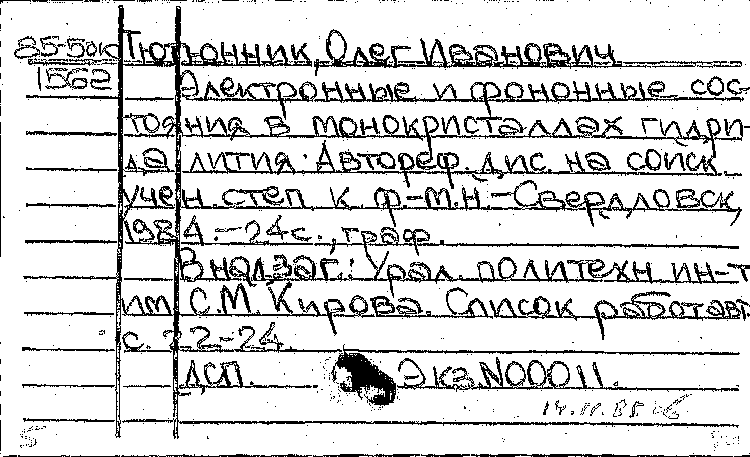 85-5ок Тютюнник, Олег Иванович
1562 Электронные и фононные сос-
тояния в монокристаллах гидри-
да лития: Автореф. дис. на соиск.
учен. степ. к. ф.-м.н.-Свердловск,
1984.-24с., граф.
В надзаг.: Урал. политехн ин-т
им С.М. Кирова. Список работ авт.
с. 22-24.
ДСП. Экз.N00011.